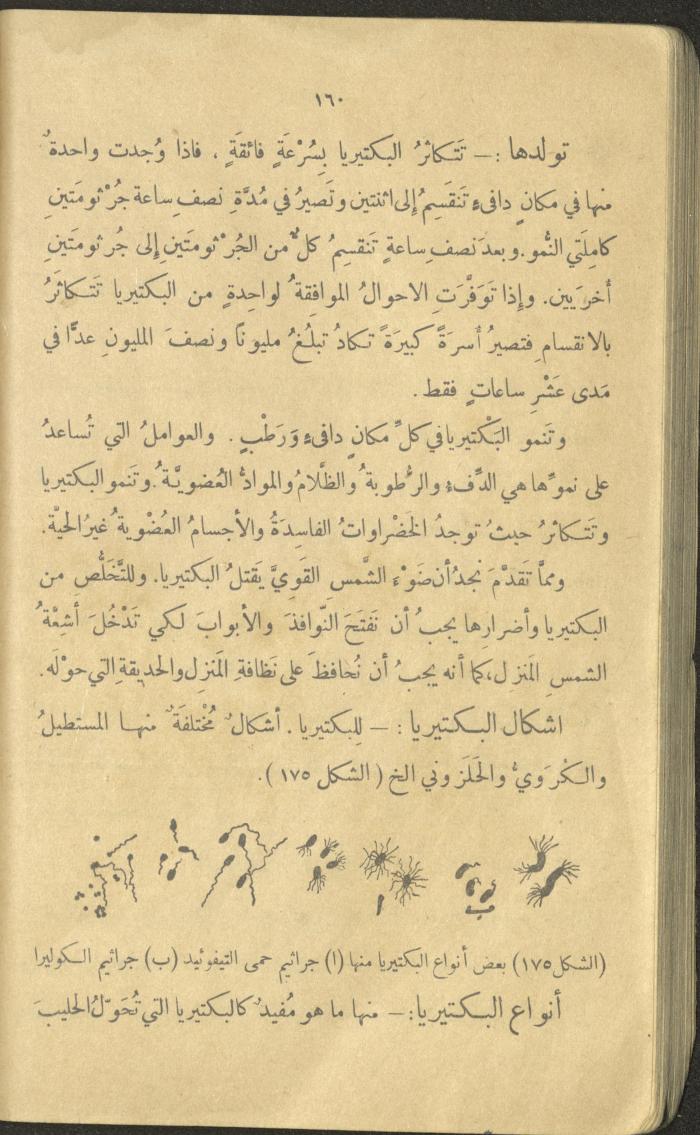 ١٦٠
تولدها : — تَتَكاثرُ البكتيريا بِسُرْعَةٍ فائقَةٍ ، فاذا وُجدت واحدةٌ
منها في مكانٍ دافىءٍ تَنقَسِمُ إلى اثنتين وتَصيرُ في مُدَّةِ نصفِ ساعة جُرْثومَتينِ
كامِلَتَي النُّمو. وبعدَ نصفِ ساعةٍ تَنقسِمُ كلٌّ من الجُرْثومَتَينِ إلى جُرثومَتَينِ
أخرَيين. وإذا تَوَفَّرَتِ الاحوالُ الموافِقةُ لواحِدةٍ من البكتيريا تَتَكاثَرُ
بالانقسامِ فتصيرُ أسرَةً كبيرَةً تكادُ تبلُغُ مليونًا ونصفَ المليونِ عدًّا في
مَدى عَشْرِ ساعاتٍ فقط .
وتَنمو البَكْتيريا في كلِّ مكانٍ دافىءٍ وَرَطْبٍ . والعواملُ التي تُساعدُ
على نموِّها هي الدِّفءُ والرُّطوبةُ والظَّلامُ والموادُّ العُضويَّةُ. وتَنمو البكتيريا
وتَتَكاثرُ حيثُ توجدُ الخَضْراواتُ الفاسِدَةُ والأجسامُ العُضْويةُ غيرُ الحيَّة.
وممَّا تَقَدَّمَ نجدُ أن ضَوْءَ الشَّمسِ القَويَّ يَقتلُ البكتيريا. وللتَّخَلُّصِ من
البكتيريا وأضرارِها يجبُ أن نَفتَحَ النَّوافذَ والأبوابَ لكي تَدْخُلَ أشِعَّةُ
الشمسِ المَنزل، كما أنه يجبُ أن نُحافظَ على نَظافةِ المَنزلِ والحديقةِ التي حوْلَه.
اشكال البكتيريا : — لِلبكتيريا . أشكالٌ مُخْتلفَةٌ منها المستطيلُ
والكُرَويُّ والحَلَزوني الخ ( الشكل ١٧٥ ).
ا
ب
(الشكل ١٧٥) بعض أنواع البكتيريا منها (ا) جراثيم حمى التيفوئيد (ب) جراثيم الكوليرا
أنواع البكتيريا: — منها ما هو مُفيدٌ كالبكتيريا التي تُحَوّلُ الحليبَ